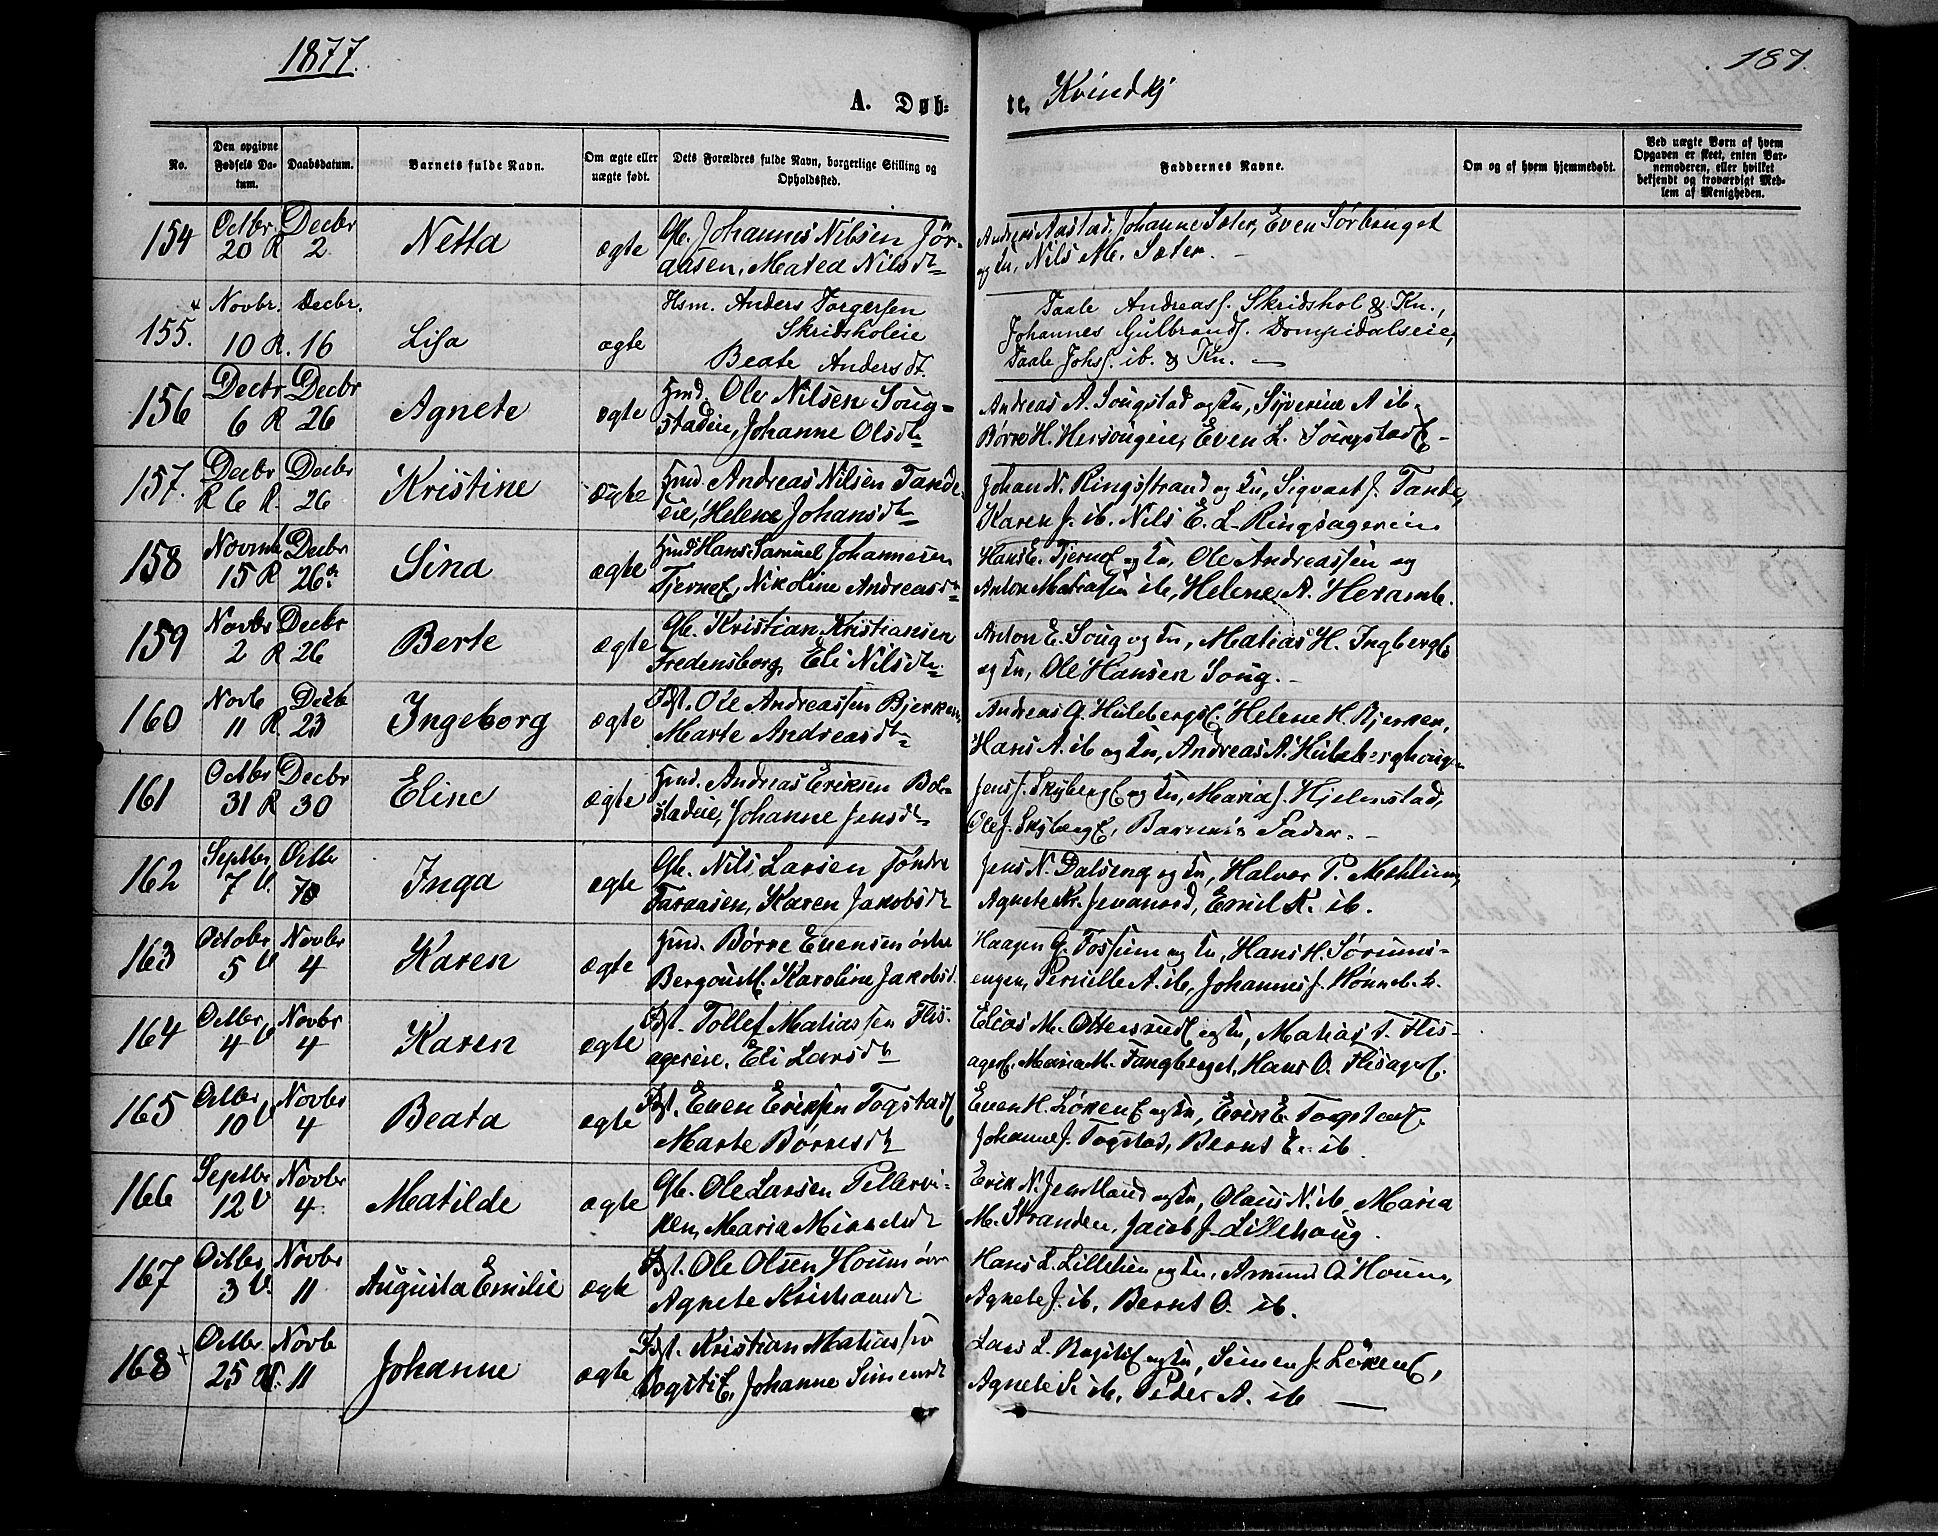 1877.
187.
A. Døb-
te, Kvindkj
No.
Den opgivne Fødsels Datum.
Daabsdatum.
Barnets fulde Navn.
Om ægte eller uægte født.
Dets Forældres fulde Navn, borgerlige Stilling og Opholdssted.
Faddernes Navne.
Om og af hvem hjemmedøbt.
Ved uægte Børn af hvem Opgaven er skeet, enten Barnemoderen, eller hvilket bekjendt og troværdigt Medlem af Menigheden.
154 Octbr 20 R Decbr 2 Netta ægte Gb. Johannes Nilsen Jør-
aasen, Matea Nilsdt
Andreas Aastad, Johanne Sæter, Even Sørbinget
og Kn, Nils M. Sæter. -
155. Novbr. 10 R. Decbr. 16 Lisa ægte Hsm. Anders Torgersen
Skridsholeie
Beate Andersdt.
Paale Andreass. Skridshol & Kn.,
Johannes Gulbrands. Dompidalseie,
Paale Johs. ib. & Kn. —
156 Decbr 6 R Decbr 26 Agnete ægte Hmd. Ole Nilsen Soug-
stadeie, Johanne Olsdt
Andreas A. Sougstad og Kn, Syverine A ib.
Børre H. Hersougeie, Even L. Sougstade -
157. Decbr 6 R. Decbr 26 Kristine ægte Hmd. Andreas Nilsen Tande-
eie, Helene Johansdt
Johan N. Ringsstrand og Kn, Sigvart J. Tande,
Karen J. ib. Nils E. L. Ringsagereie.
158 Novmb 15 R Decbr 26 Sina ægte Hmd Hans Samuel Johannesen
Tjernee, Nikoline Andreasdt
Hans E. Tjerne og Kn, Ole Andreassen og
Anton Matiassen ib, Helene A. Heramb.
159 Novbr 2 R Decbr 26 Berte ægte Gb. Kristian Kristiansen
Fredensborg, Eli Nilsdt.
Anton E. Soug og Kn, Matias H. Ingberg
og Kn, Ole Hansen Soug. -
160 Novb 11 R Decb 23 Ingeborg ægte Fst. Ole Andreassen Bjerken
Marte Andreasdt
Andreas G. Hulebergs. Helene H. Bjerken,
Hans A. ib og Kn, Andreas A. Huleberghoug
161 Octbr 31 R Decbr 30 Eline ægte Hmd. Andreas Eriksen Bol-
stadeie, Johanne Jensdt
Jens J. Skyberg og Kn, Maria J. Hjelmstad,
Ole J. Skyberg, Barnets Fader. -
162 Septbr 7 V. Octbr Inga ægte Gb. Nils Larsen søndre
Faraasen, Karen Jakobsdt
Jens N. Dalseng og Kn, Halvor P. Mæhlum,
Agnete Kr. Jevanord, Emil K. ib.
163 Octobr 5 V Novbr 4 Karen ægte Hmd. Børre Evensen østre
Bergoust. Karoline Jakobsd.
Haagen G. Fossum og Kn, Hans H. Sørums-
engen, Pernille A. ib, Johannes J. Hønneb.
164 Octbr 4 V Novbr 4 Karen ægte Fst. Tollef Matiassen Flis-
agereie. Eli Larsdt
Elias M. Ottersrud og Kn, Matias T. Flis-
ager. Maria M. Fangberget, Hans O. Flisager.
165 Octbr 10 V Novbr 4 Beata ægte Fst. Even Eriksen Togstad
Marte Børresdt
Even H. Løken og Kn, Erik E. Togstad.
Johanne J. Togstad, Bernt E. ib.
166 Septbr 12 V Novbr 4. Matilde ægte Gb. Ole Larsen Pellervi-
ken, Maria Mikkelsdt
Erik N. Jemtland og Kn, Olaus N. ib, Maria
M. Stranden, Jacob J. Lillehoug.
167 Octbr 3 V. Novbr 11 Augusta Emilie ægte Fst. Ole Olsen Houm øvre
Agnete Kristiansdt
Hans L. Lillelien og Kn. Amund O. Houm,
Agnete J. ib, Bernt O. ib.
168 Octbr 25 V. Novb 11 Johanne ægte Fst. Kristian Matiassen
Johanne Simensdt
Lars L. og Kn, Simen J. Løken,
Agnete S ib, Peder A. ib —